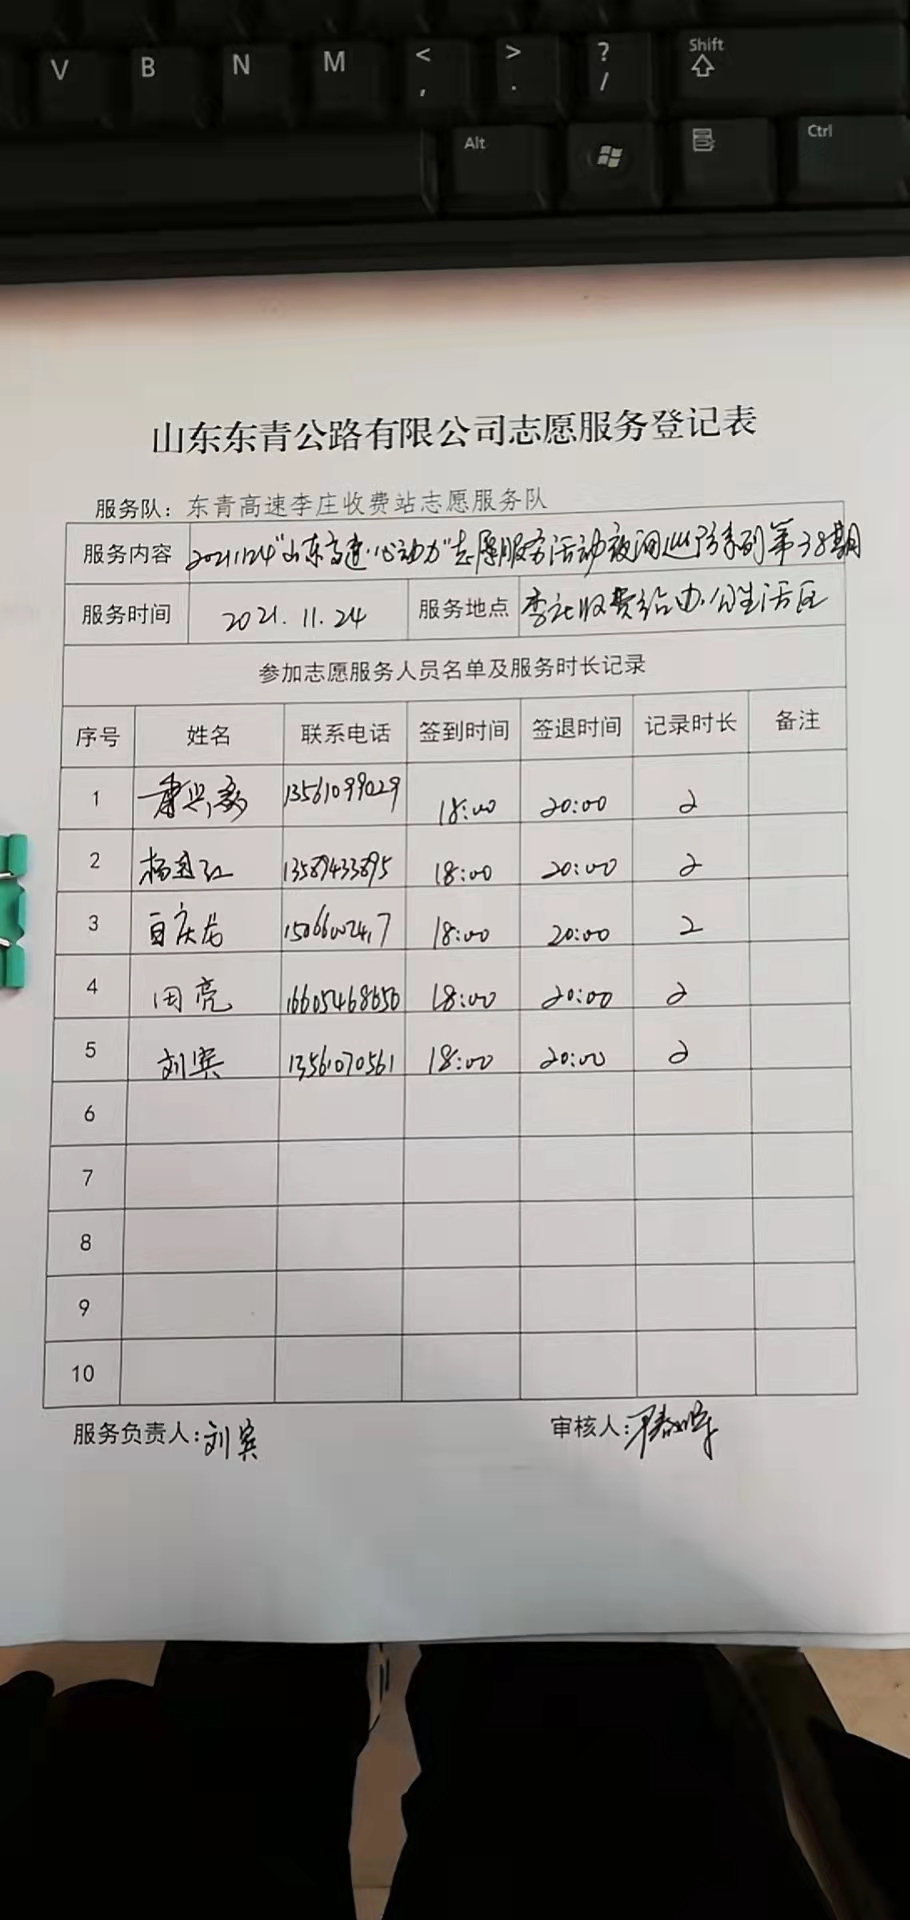 V B N M < , > . ? / Shift
Alt Ctrl
山东东青公路有限公司志愿服务登记表
服务队：东青高速李庄收费站志愿服务队
服务内容 20211124"山东高速·心动力"志愿服务活动夜间巡防系列第38期
服务时间 2021.11.24 服务地点 李庄收费站办公生活区
参加志愿服务人员名单及服务时长记录
序号 姓名 联系电话 签到时间 签退时间 记录时长 备注
1 13561099029 18:00 20:00 2
2 13589433895 18:00 20:00 2
3 18:00 20:00 2
4 田亮 16605468656 18:00 20:00 2
5 刘宾 13561070561 18:00 20:00 2
6
7
8
9
10
服务负责人：刘宾 审核人：